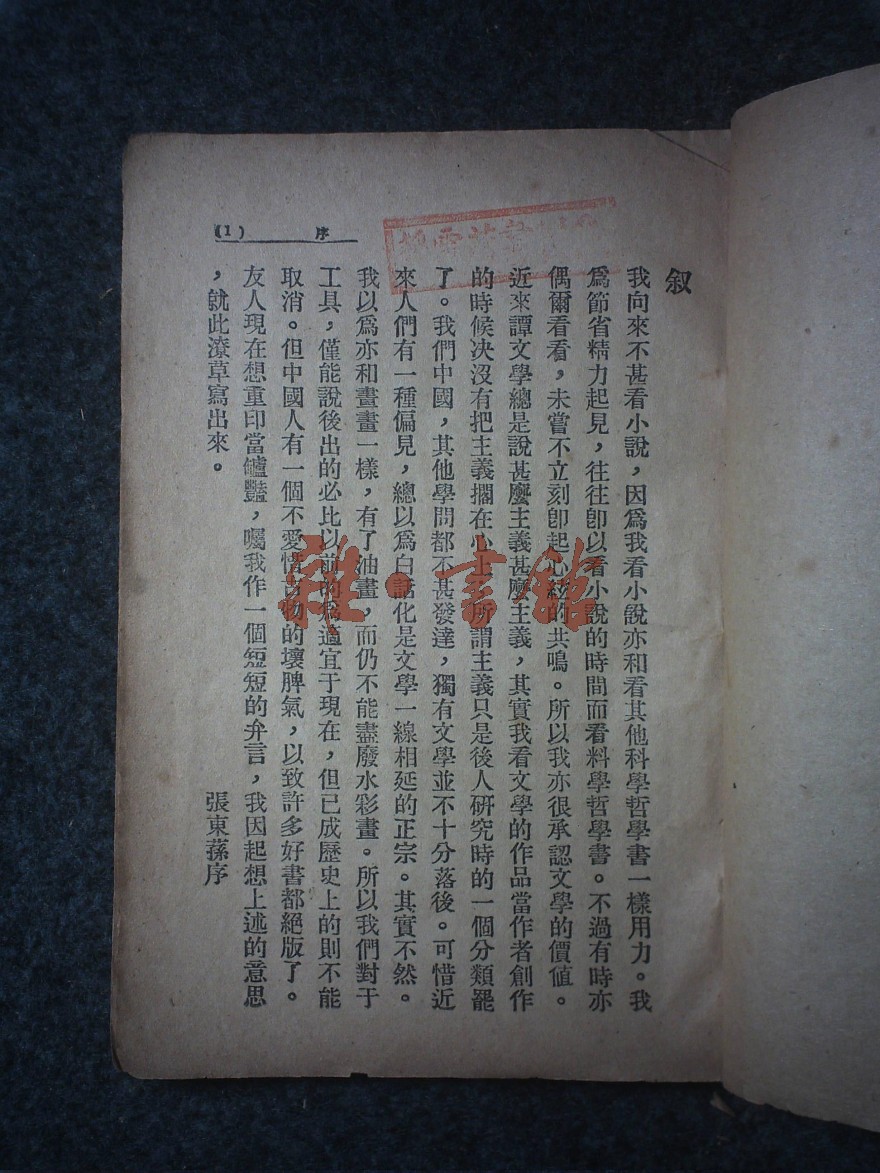 序 (1)
叙
我向來不甚看小說，因爲我看小說亦和看其他科學哲學書一樣用力。我
爲節省精力起見，往往卽以看小說的時間而看料學哲學書。不過有時亦
偶爾看看，未嘗不立刻卽起心絃的共鳴。所以我亦很承認文學的價値。
近來譚文學總是說甚麼主義甚麼主義，其實我看文學的作品當作者創作
的時候决沒有把主義擱在心上，所謂主義只是後人研究時的一個分類罷
了。我們中國，其他學問都不甚發達，獨有文學並不十分落後。可惜近
來人們有一種偏見，總以爲白話化是文學一線相延的正宗。其實不然。
我以爲亦和畫畫一樣，有了油畫，而仍不能盡廢水彩畫。所以我們對于
工具，僅能說後出的必比以前的爲適宜于現在，但已成歷史上的則不能
取消。但中國人有一個不愛惜古物的壞脾氣，以致許多好書都絕版了。
友人現在想重印當鑪豔，囑我作一個短短的弁言，我因起想上述的意思
，就此潦草寫出來。
張東蓀序
雜·書館